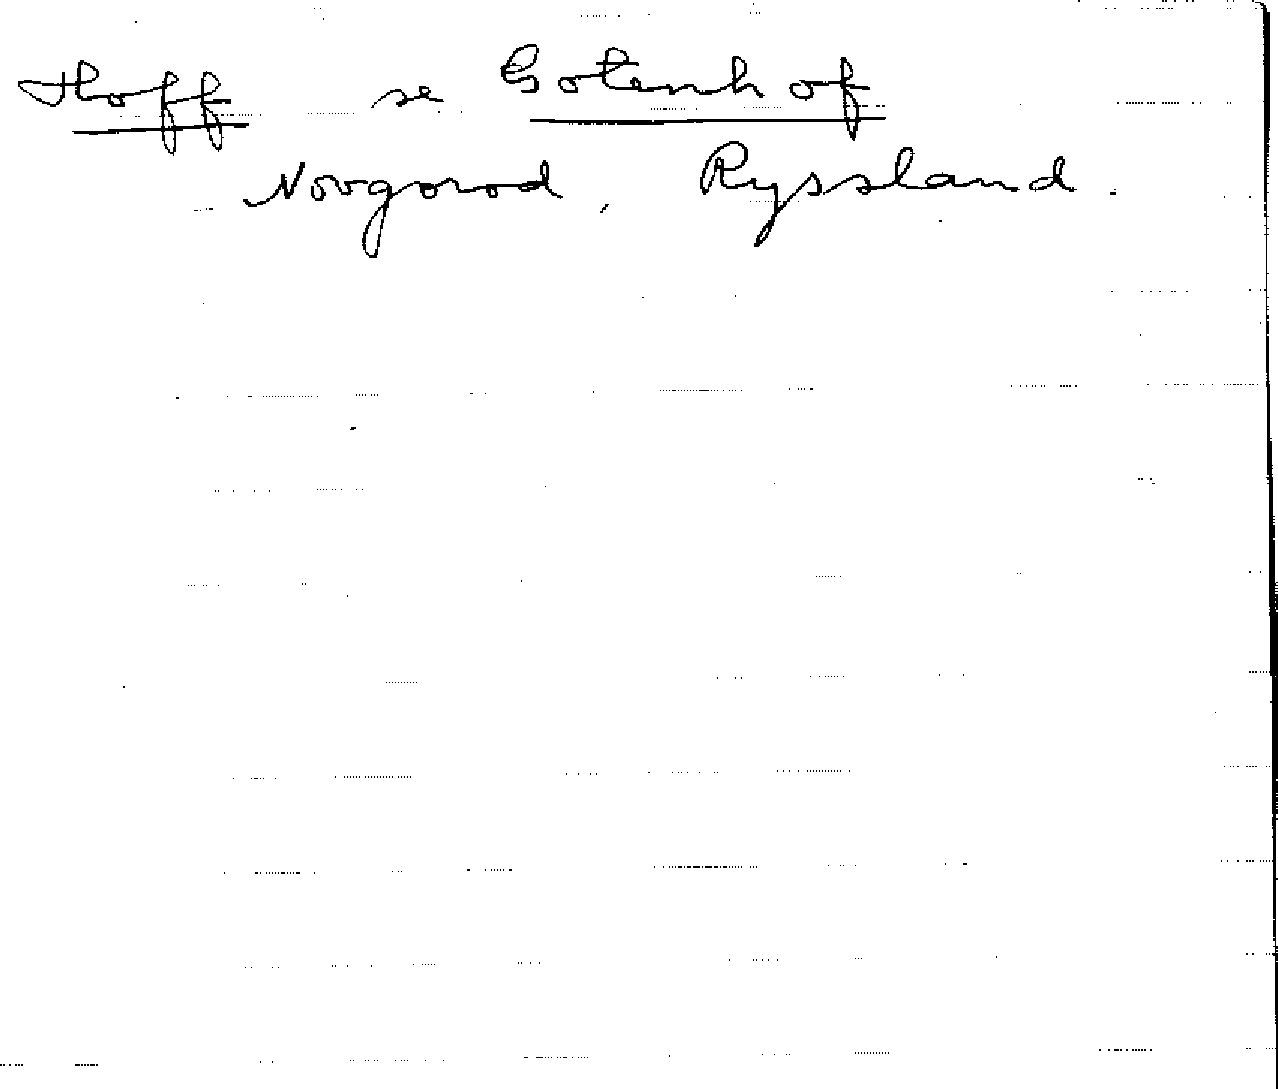 Hoff se Gotenhof
Novgorod, Ryssland.